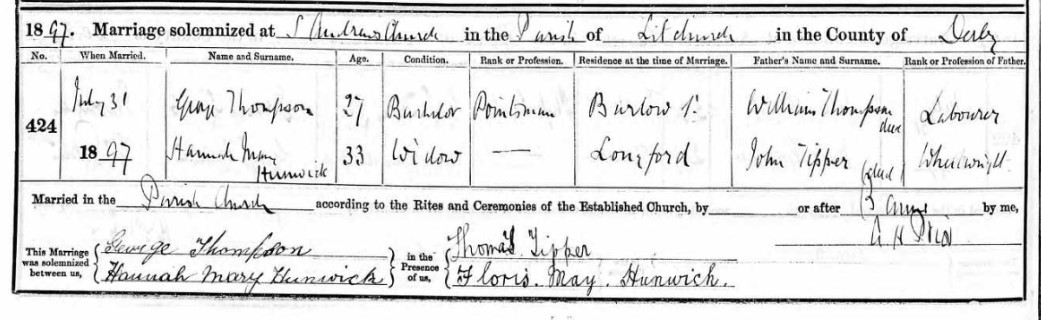 1897. Marriage solemnized at St Andrews Church in the Parish of Litchurch in the County of Derby
No. When Married. Name and Surname. Age. Condition. Rank or Profession. Residence at the time of Marriage. Father's Name and Surname. Rank or Profession of Father.
424 July 31 George Thompson 27 Bachelor Pointsman Barlow St. William Thompson decd Labourer
1897 Hannah Mary Hunwick 33 Widow — Longford John Tipper (decd) Wheelwright
Married in the Parish Church according to the Rites and Ceremonies of the Established Church, by or after by me,
This Marriage was solemnized between us, { George Thompson } in the Presence of us, { Thomas Tipper
{ Hannah Mary Hunwick } { Floris. May. Hunwick.